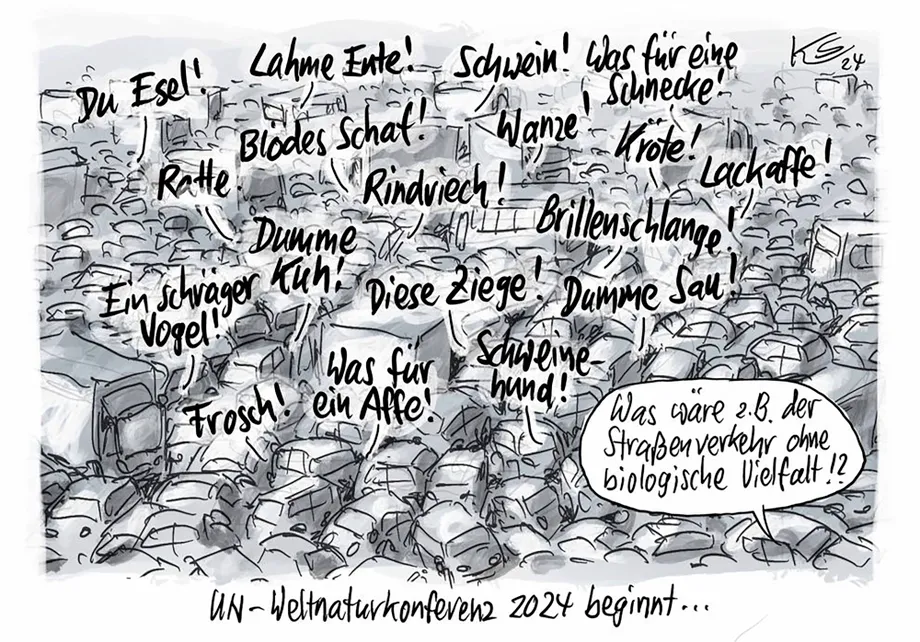 KS 24
Du Esel!
Lahme Ente!
Schwein!
Was für eine
Schnecke!
Blödes Schaf!
Wanze!
Kröte!
Ratte
Rindviech!
Lackaffe!
Brillenschlange!
Dumme
Kuh!
Ein schräger
Vogel!
Diese Ziege!
Dumme Sau!
Was für
ein Affe!
Schweine-
hund!
Frosch!
Was wäre z.B. der
Straßenverkehr ohne
biologische Vielfalt!?
UN-Weltnaturkonferenz 2024 beginnt...